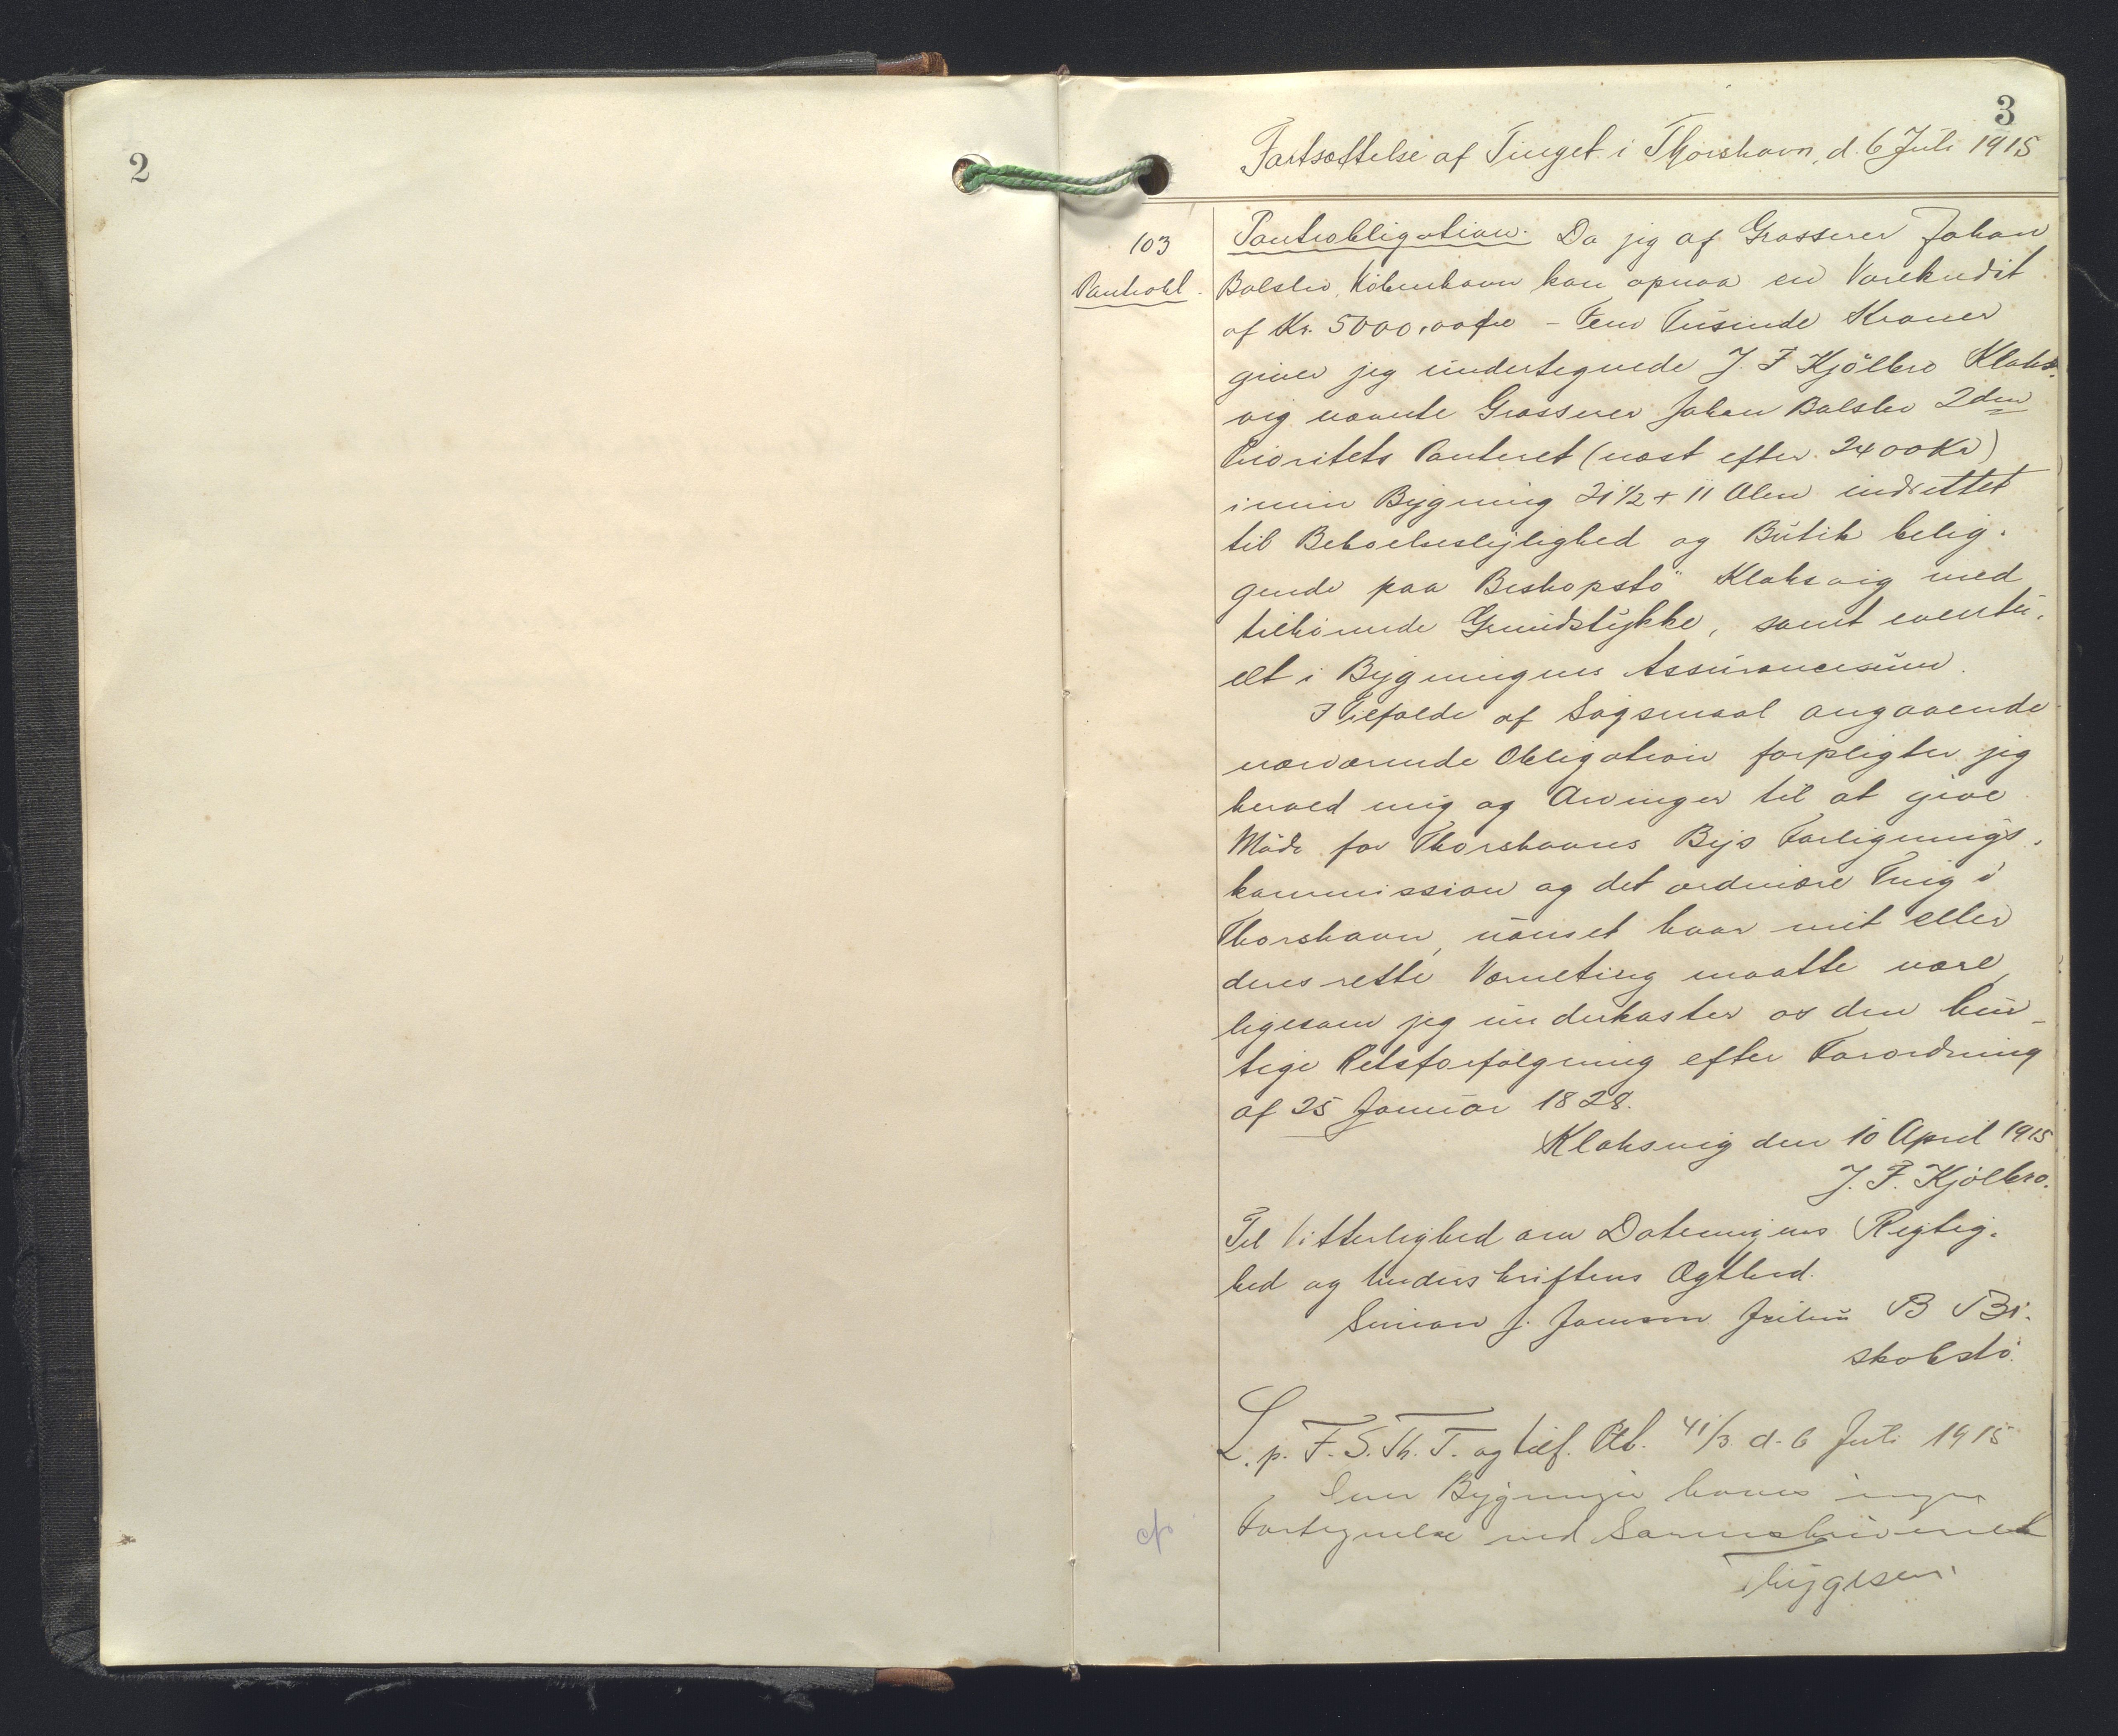 2
3
Fortsættelse af Tinget i Thorshavn, d. 6 Juli 1915
103
Pantobl.
Pantobligation. Da jeg af Grosserer Johan
Balslev, København kan opnaa en Varekredit
af Kr. 5000,00 Øre - Fem Tusinde Kroner
giver jeg undertegnede J. F Kjölbro Klaks-
vig nævnte Grosserer Johan Balslev 2den
Prioritets Panteret (næst efter 2400 Kr)
i min Bygning 21 1/2 + 11 Alen indrettet
til Beboelseslejlighed og Butik belig-
gende paa Biskopstö Klaksvig med
tilhörende Grundstykke, samt eventu-
elt i Bygningens Assurancesum.
I Tilfælde af Sagsmaal angaaende
nærværende Obligation forpligter jeg
herved mig og Arvinger til at give
Möde for Thorshavns Byes Forlignings-
kommission og det ordinære Ting i
Thorshavn, uanset hvor mit eller
deres rette Værneting maatte være,
ligesom jeg underkaster os den hur-
tige Retsforfølgning efter Forordning
af 25 Januar 1828.
Klaksvig den 10 April 1915
J. F. Kjölbro.
Til Vitterlighed om Dateringens Rigtig-
hed og Underskriftens Ægthed.
Simon J. Joensen B Bi-
skobstö.
L. p. F. S. Th. T. og tilf. Ptb. 41/3 d. 6 Juli 1915
Over Bygningen haves ingen
Fortegnelse ved Sorenskriveriet
Thygesen.